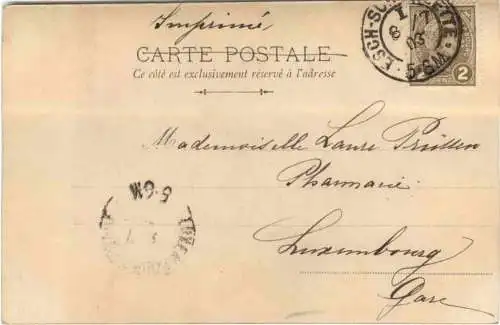 Imprimé
CARTE POSTALE
Ce côté est exclusivement réservé à l'adresse
ESCH-SUR- 
8 7
03
5-6M
2
Mademoiselle Laure Prüssen
Pharmacie
Luxembourg
Gare
5-6M